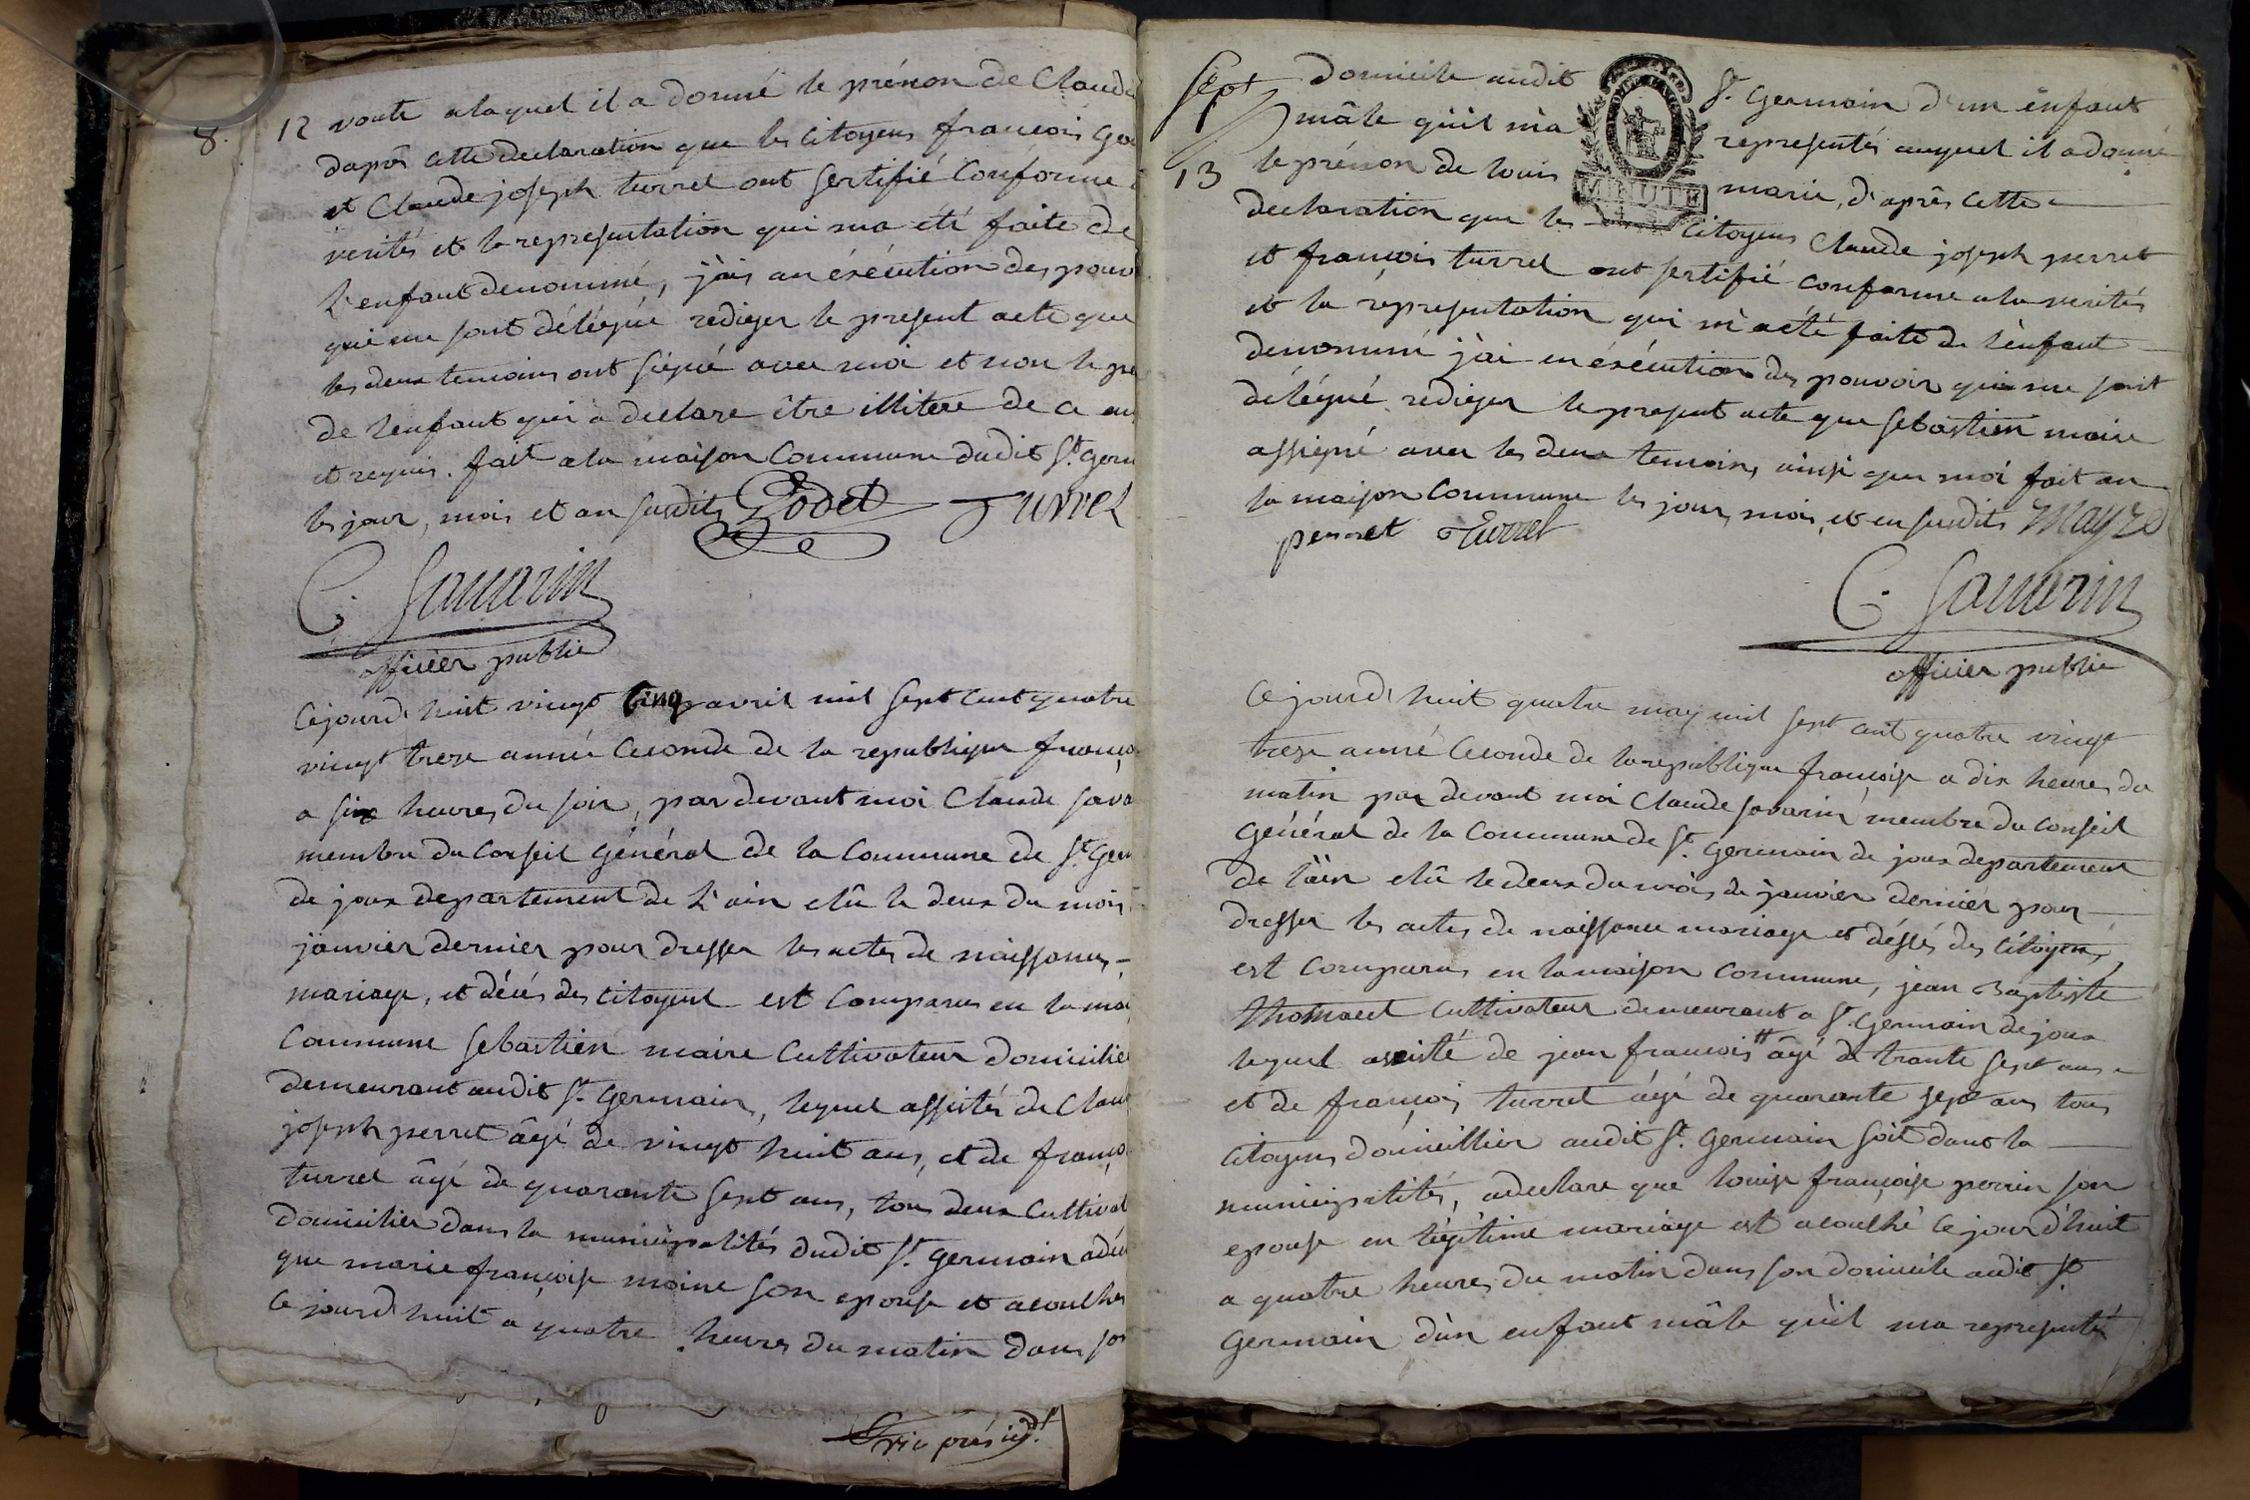 8.
12 vante alaquel il a donné le prénon de Claud
daprès cette declaration que les Citoyens françois God
et Claude joseph turrel ont sertifié Conforme a
verités et la representation qui ma été faite de
L'enfant denommé, j'ais an éxécution des pouvo
qui me sont délégué rediger le present acte que
les deux temoins ont signé avec moi et non le pe
de l'enfant qui a declare être illitere de ce en
et requis. fait a la maison Commune dudit St. Germ
les jour, mois et an susdits Godet Turrel
C. Savarin
officier public
Cejourd'huit vingt Cinq avril mil sept cent quatre
vingt treze année Ceconde de la republique françoi
a six heures du soir, par devant moi Claude sava
membre du Conseil Général de la Commune de St. Germ
de joux departement de L'ain elû le deux du mois
janvier dernier pour dresser les actes de naissances
mariage, et décés des Citoyens est Comparus en la mai
Commune sebastien maire Cultivateur domicilie
demeurant audit St. Germain, lequel assistés de Clau
joseph perret âgé de vingt huit ans, et de franço
turrel âgé de quarante sept ans, tous deux Cultivat
domicilier dans la municipalités dudit St. Germain adec
que marie françoise moine son epouse et acoulhé
ce jourd'huit a quatre heures du matin dans son
présidt.
Sept
13
domicile audit St. Germain d'un enfant
mâle qu'il m'a representés auquel il a donné
le prénon de louis marie, d'après cette
declaration que les Citoyens Claude joseph perret
et françois turrel ont sertifié conforme a la verités
et la representation qui m'a eté faite de l'enfant
denommé j'ai en éxécution des pouvoir qui me sont
délégué rediger le present acte que sebastien maire
assigné avec les deux temoins ainsi que moi fait an
la maison Commune les jour, mois et en susdits Mayre
perret Turrel
MINUTE
C. Savarin
officier public
Cejourd'huit quatre may mil sept cent quatre vingt
treze anné Ceconde de la republique françoise a dix heures du
matin par devant moi Claude savarin membre du Conseil
Général de la Commune de St. Germain de joux departement
de l'ain elû le deux du mois de janvier dernier pour
dresser les actes de naissance mariage et déssés des Citoyens,
est Comparus en la maison Commune, jean Baptiste
thomasset Cultivateur demeurant a St. Germain de joux
lequel assisté de jean françois # âgé de trante sept ans
et de françois turrel âgé de quarante sept ans tous
Citoyens domicillier audit St. Germain soit dant la
municipalités, a declare que louise françoise perrin son
epouse en légitime mariage est acoulhé ce jourd'huit
a quatre heures du matin dans son domicile audit St.
Germain d'un enfant mâle qu'il ma representé